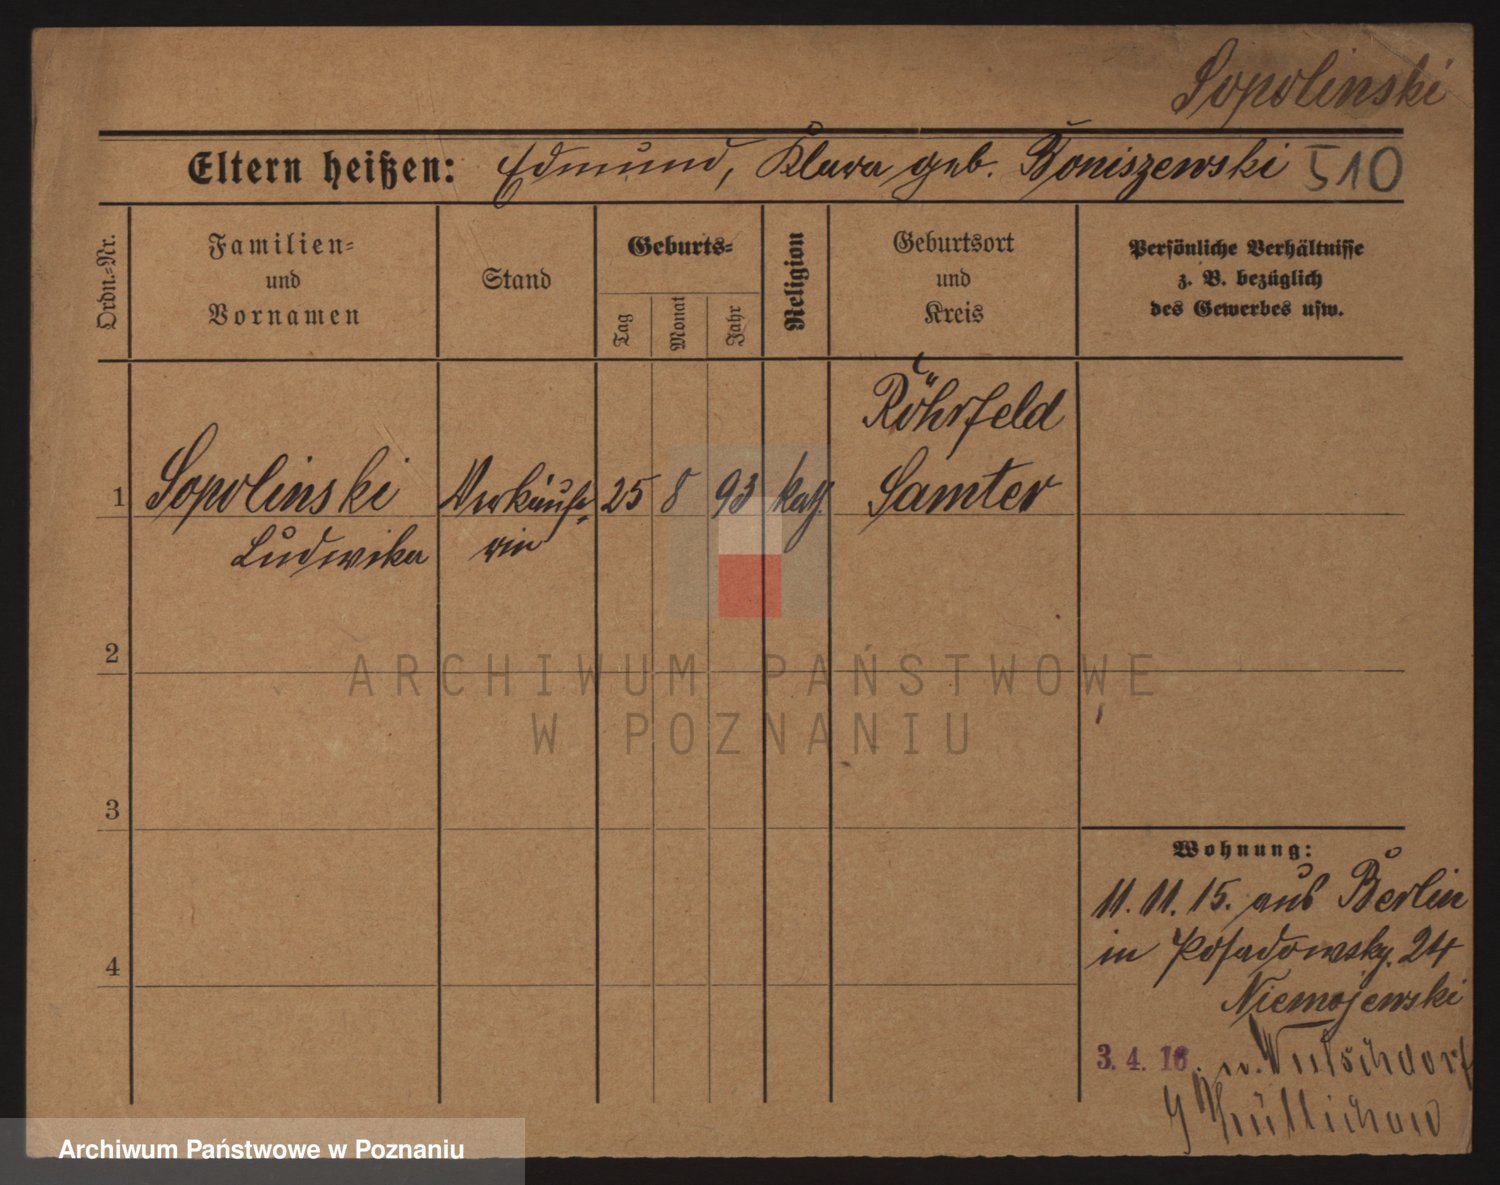 Sopolinski
Eltern heißen: Edmund, Klara geb. Boniszewski 510
Ordn.=Nr.
Familien=
und
Vornamen
Stand
Geburts=
Tag
Monat
Jahr
Religion
Geburtsort
und
Kreis
Persönliche Verhältnisse
z. B. bezüglich
des Gewerbes usw.
Röhrfeld
1 Sopolinski Verkäufe= 25 8 93 kath. Samter
Ludwika rin
2
3
4
Wohnung:
11. 11. 15. aus Berlin
in Posadowsky. 24
Niemojewski
3. 4. 16. n.
Züllichow
ARCHIWUM PAŃSTWOWE
W POZNANIU
Archiwum Państwowe w Poznaniu